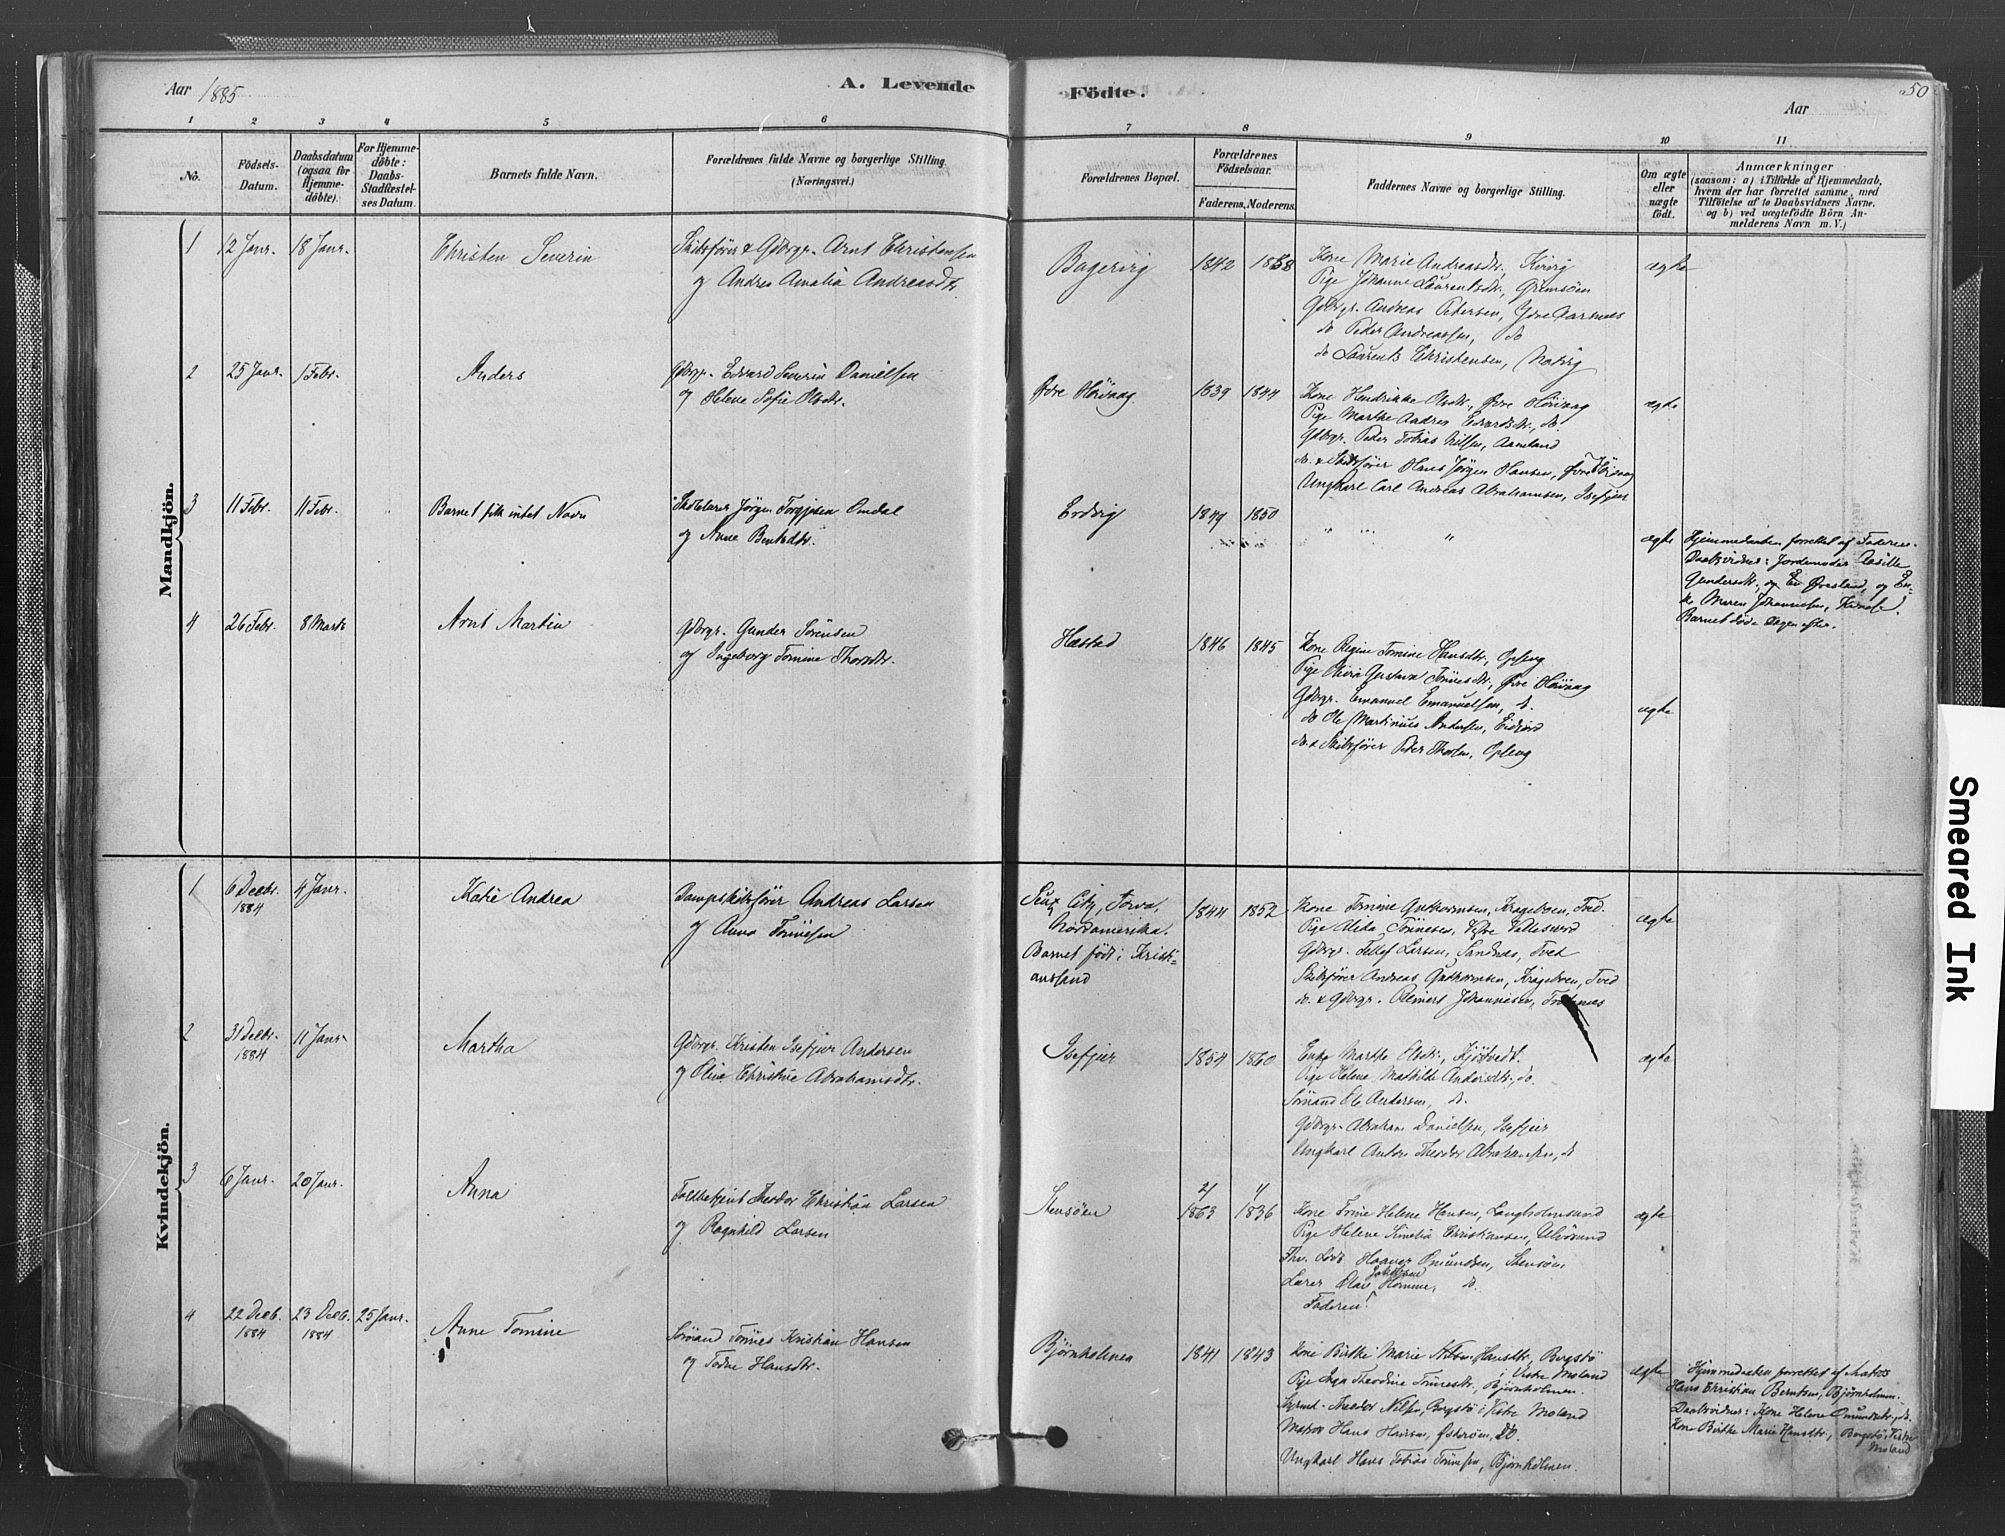 Aar 1885
A. Levende
Fødte.
Aar
50
1 2 3 4 5 6 7 8 9 10 11
No.
Fødsels-
Datum.
Daabsdatum
(ogsaa for
Hjemme-
døbte).
For Hjemme-
døbte:
Daabs-
Stadfæstel-
ses Datum.
Barnets fulde Navn.
Forældrenes fulde Navne og borgerlige Stilling.
(Næringsvei.)
Forældrenes Bopæl.
Forældrenes
Fødselsaar.
Faderens. Moderens.
Faddernes Navne og borgerlige Stilling.
Om ægte
eller
uægte
født.
Anmærkninger
(saasom: a) i Tilfælde af Hjemmedaab,
hvem der har forrettet samme, med
Tilføielse af to Daabsvidners Navne.
og b) ved uægtefødte Børn An-
melderens Navn m. V.)
Mandkjön.
1 12 Janr. 18 Janr. Christen Severin
Skibsfører & Gdbrgr. Arnt Christensen
og Andrea Amalia Andreasdtr
1842 1858
Kone Marie Andreasdtr,
Pige Johanne Laurentsdtr, Grimsöen
Gdbrgr. Andreas Pedersen, Ydre Aarsnes
do Peder Andreassen, do
do Laurents Christensen,
ægte
2 25 Janr. 1 Febr. Anders
Gdbrgr. Edvard Severin Danielsen
og Helene Sofie Olsdtr.
Øvre Hövaag 1839 1844
Kone Hendrikke Olsdtr., Øvre Hövaag
Pige Marthe Andrea Edvardsdtr., do.
Gdbrgr. Peder Tobias Nilsen, Aamland
do. & Skibsfører Hans Jörgen Hansen, Øvre Hövaag
Ungkarl Carl Andreas Abrahamsen, Isefjær
ægte
3 11 Febr. 11 Febr. " Barnet fik intet Navn
Skolelærer Jörgen Omdal
og Anne Bentsdtr.
Eidvig 1849 1850
" " "
ægte
Hjemmedaaben forrettet af Faderen.
Daabsvidner: Jordemoder
Gundersdtr., og En-
ke Maren Johannesen,
Barnet döde Dagen efter.
4 26 Febr. 8 Marts Arnt Martin
Gdbrgr. Gunder Sörensen
og Ingeborg Tomine Thorsdtr.
Hæstad 1846 1845
Kone Regine Tomine Hansdtr., Opseng
Pige Olivia Gustava Tönnesdtr., Øvre Hövaag
Gdbrgr. Emanuel Emanuelsen, do.
do Ole Martinius Andersen,
do. & Skibsfører Peder Thorsen, Opseng
ægte
Kvindekjön.
1 6 Decbr. 1884 4 Janr. Katie Andrea
Dampskibsfører Andreas Larsen
og Anna Tönnesen
Sioux City, Iowa,
Nordamerika.
Barnet födt i Kristi-
ansand
1844 1852
Kone Tomine Guthormsen, Kragelven, Tved.
Pige Alida Tönnesen, Vestre Vallesværd
Gdbrgr. Tellef Larsen, Sandnes, Tved
Skibsfører Andreas Guthormsen, Kragelven, Tved
do. & Gdbrgr. Reinert Johannesen,
ægte
2 31 Decbr. 1884 11 Janr. Martha
Gdbrgr. Kristen Isefjær Andersen
og Oline Christine Abrahamsdtr.
Isefjær 1854 1860
Enke Marthe Olsdtr.,
Pige Helene Mathilde Andersdtr., do.
Sömand Ole Andersen, do.
Gdbrgr. Abraham Danielsen, Isefjær
Ungkarl Anton Theodor Abrahamsen, do
ægte
3 6 Janr. 20 Janr. Anna
Toldbetjent Theodor Christian Larsen
og Ragnhild Larsen
Stensöen 1863 1836
Kone Trine Helene Hansen, Langholmsund
Pige Helene Amelia Christiansen, Ulvösund
Fhv. Lods Haaver Omundsen, Stensöen
Lærer Olav Homme, do.
Faderen
ægte
4 22 Decb. 1884 23 Decb. 1884 25 Janr. Anne Tomine
Sömand Tönnes Kristian Hansen
og Tobine Hansdtr.
Bjørnholmen 1841 1843
Kone Birthe Marie Hansdtr., Bergstö
i Vestre Moland
Pige Inga Theodine Tönnesdtr., Bjørnholmen.
Theodor Nilsen, Bergstö i Vestre Moland
Matros Hans Hansen, Österöen, do.
Ungkarl Hans Tobias Tönnesen, Bjørnholmen.
ægte
Hjemmedaaben forrettet af Matros
Hans Christian Berntsen, Bjørnholmen.
Daabsvidner: Kone Helene Omundsdtr., do.
Kone Birthe Marie Hansdtr., Bergstö, Vestre
Moland
Smeared Ink